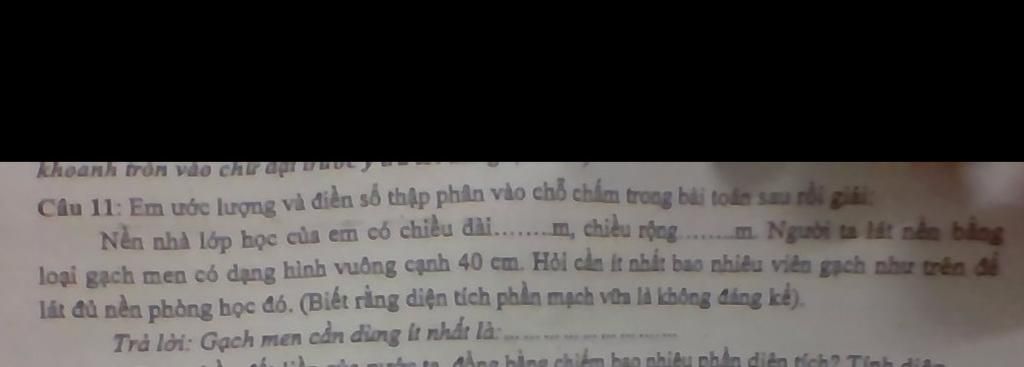 khoanh tròn vào chữ
Câu 11: Em ước lượng và điền số thập phân vào chỗ chấm trong bài toán sau rồi giải:
Nền nhà lớp học của em có chiều dài........m, chiều rộng........m. Người ta lát nền bằng
loại gạch men có dạng hình vuông cạnh 40 cm. Hỏi cần ít nhất bao nhiêu viên gạch như trên để
lát đủ nền phòng học đó. (Biết rằng diện tích phần mạch vữa là không đáng kể).
Trả lời: Gạch men cần dùng ít nhất là: ... ... ... ... ... ... ... ...
đồng bằng chiếm bao nhiêu phần diện tích? Tính diện